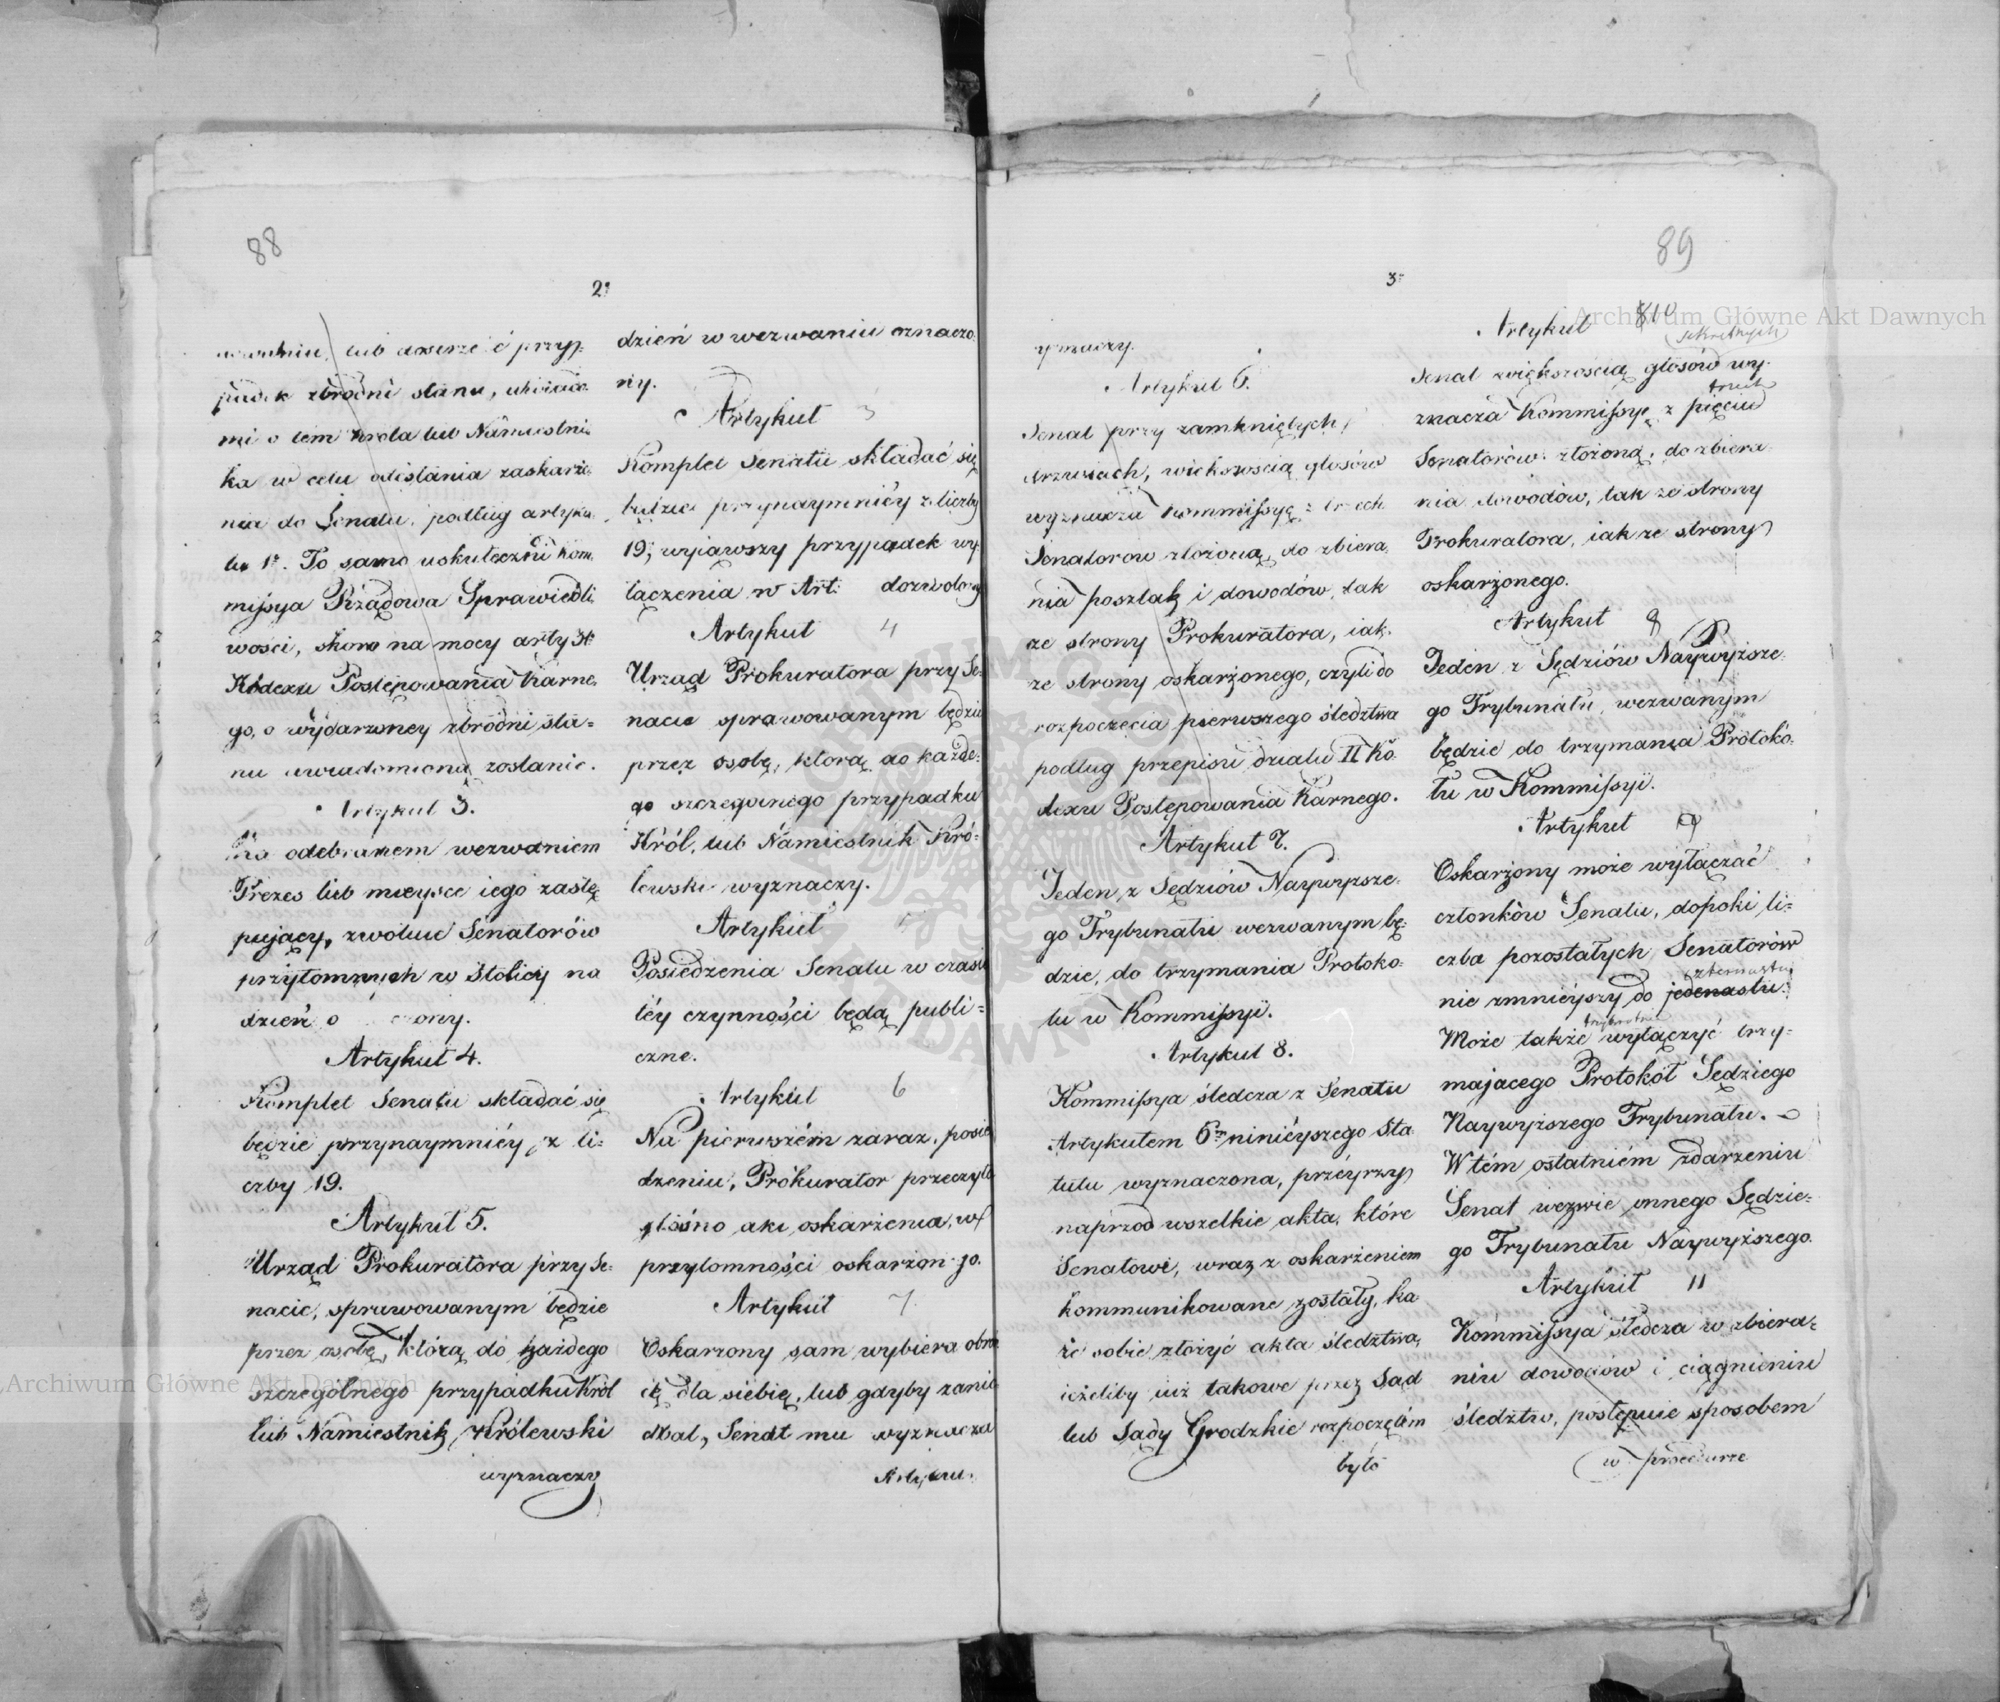 88
2.
lub
zbrodni stanu,
mi o tem Krola lub Namiestni-
ka w celu odesłania zaskarże-
nia do Senatu, podług artyku-
łu 1º. To samo uskuteczni Kom-
missya Rządowa Sprawiedli-
wości, skoro na mocy arty
Kodexu Postępowania Karne-
go, o wydarzoney zbrodni sta-
nu uwiadomioną zostanie.
Artykuł 3.
Za odebraniem wezwaniem
Prezes lub mieysce iego zastę-
pujący, zwołuie Senatorów
przytomnych w Stolicy na
dzień
Artykuł 4.
Komplet Senatu składać się
będzie przynaymniéy, z li-
czby 19.
Artykuł 5.
Urząd Prokuratora przy Se-
nacie, sprawowanym będzie
przez osobę, którą do każdego
szczególnego przypadku Król
lub Namiestnik Królewski
wyznaczy
dzień w wezwaniu oznaczo-
ny.
Artykuł 3
Komplet Senatu składać się
będzie przynaymniéy z liczby
19; wyiąwszy przypadek wy-
łączenia w Art. dozwolony
Artykuł 4
Urząd Prokuratora przy Se-
nacie sprawowanym będzie
przez osobę, którą do każde-
go szczególnego przypadku
Król, lub Námiestnik Kró-
lewski wyznaczy.
Artykuł 5
Posiedzenia Senatu w czasie
téy czynności będą publi-
czne.
Artykuł 6
Na pierwszém zaraz posie-
dzeniu, Prokurator przeczyta
głośno akt oskarżenia, w
przytomności oskarżonego.
Artykuł 7.
Oskarżony sam wybiera obroń-
cę dla siebie, lub gdyby zanie-
dbał, Senat mu wyznacza
Artykuł
89
3.
wyznaczy.
Artykuł 6.
Senat przy zamkniętych
drzwiach, większością głosów
wyznacza Kommissyę z trzech
Senatorow złożoną, do zbiera-
nia poszlak i dowodów, tak
ze strony Prokuratora, iak
ze strony oskarżonego, czyli do
rozpoczęcia pierwszego śledztwa
podług przepisu działu II Ko-
dexu Postępowania Karnego.
Artykuł 7.
Jeden z Sędziów Naywyższe-
go Trybunału wezwanym bę-
dzie, do trzymania Protoko-
łu w Kommissyi.
Artykuł 8.
Kommissya śledcza z Senatu
Artykułem 6m ninieyszego Sta-
tutu wyznaczona, przéyrzy
naprzod wszelkie akta, które
Senatowi, wraz z oskarżeniem
kommunikowane zostały, ka-
że sobie złożyć akta śledztwa,
ieżeliby iuż takowe przez Sąd
lub Sądy Grodzkie rozpoczętém
było
Artykuł 8
sekretnych
Senat większością głosów wy-
trzech
znacza Kommissyę z pięciu
Senatorów złożoną, do zbiera-
nia dowodów, tak ze strony
Prokuratora, iak ze strony
oskarżonego.
Artykuł 9
Jeden z Sędziów Naywyższe-
go Trybunału, wezwanym
będzie do trzymania Protoko-
łu w Kommissyi.
Artykuł
Oskarżony może wyłączać
członków Senatu, dopoki li-
czba pozostałych Senatorów
nie zmniéyszy do jedenastu.
Może także wyłączyć trzy-
maiącego Protokół Sędziego
Naywyższego Trybunału.
W tém ostatniém zdarzeniu
Senat wezwie innego Sędzie-
go Trybunału Naywyższego.
Artykuł 11
Kommissya śledcza w zbiera-
niu dowodów i ciągnieniu
śledztw, postępuie sposobem
w procedurze
Archiwum Główne Akt Dawnych
Archiwum Główne Akt Dawnych
ARCHIWUM GŁÓWNE AKT DAWNYCH